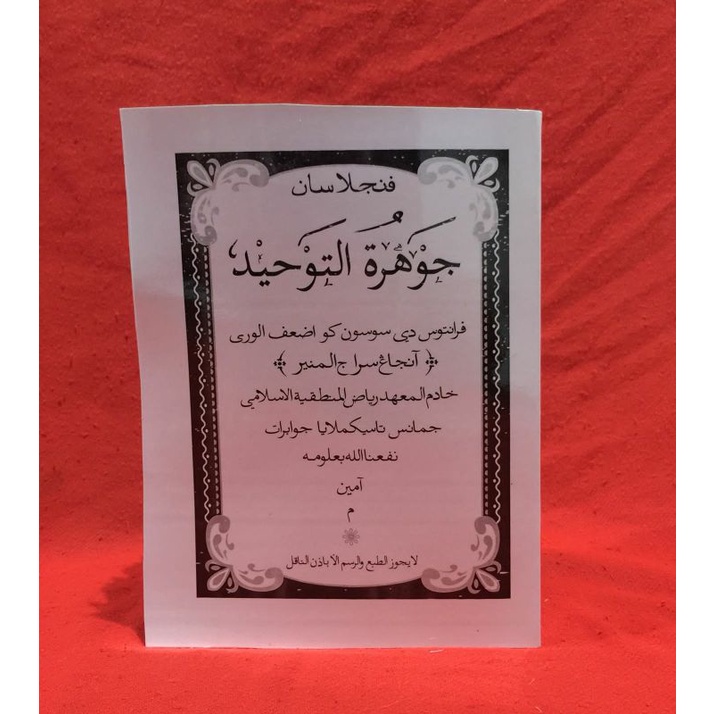 فنجلاسان
جَوْهَرَةُ التَوْحِيْد
فرانتوس دي سوسون كو اضعف الورى
﴿ آنجاڠ سراج المنير ﴾
خادم المعهد رياض المنطقية الاسلامي
جمانس تاسيكملايا جوابرات
نفعنا الله بعلومه
آمين
م
لا يجوز الطبع والرسم الا باذن الناقل